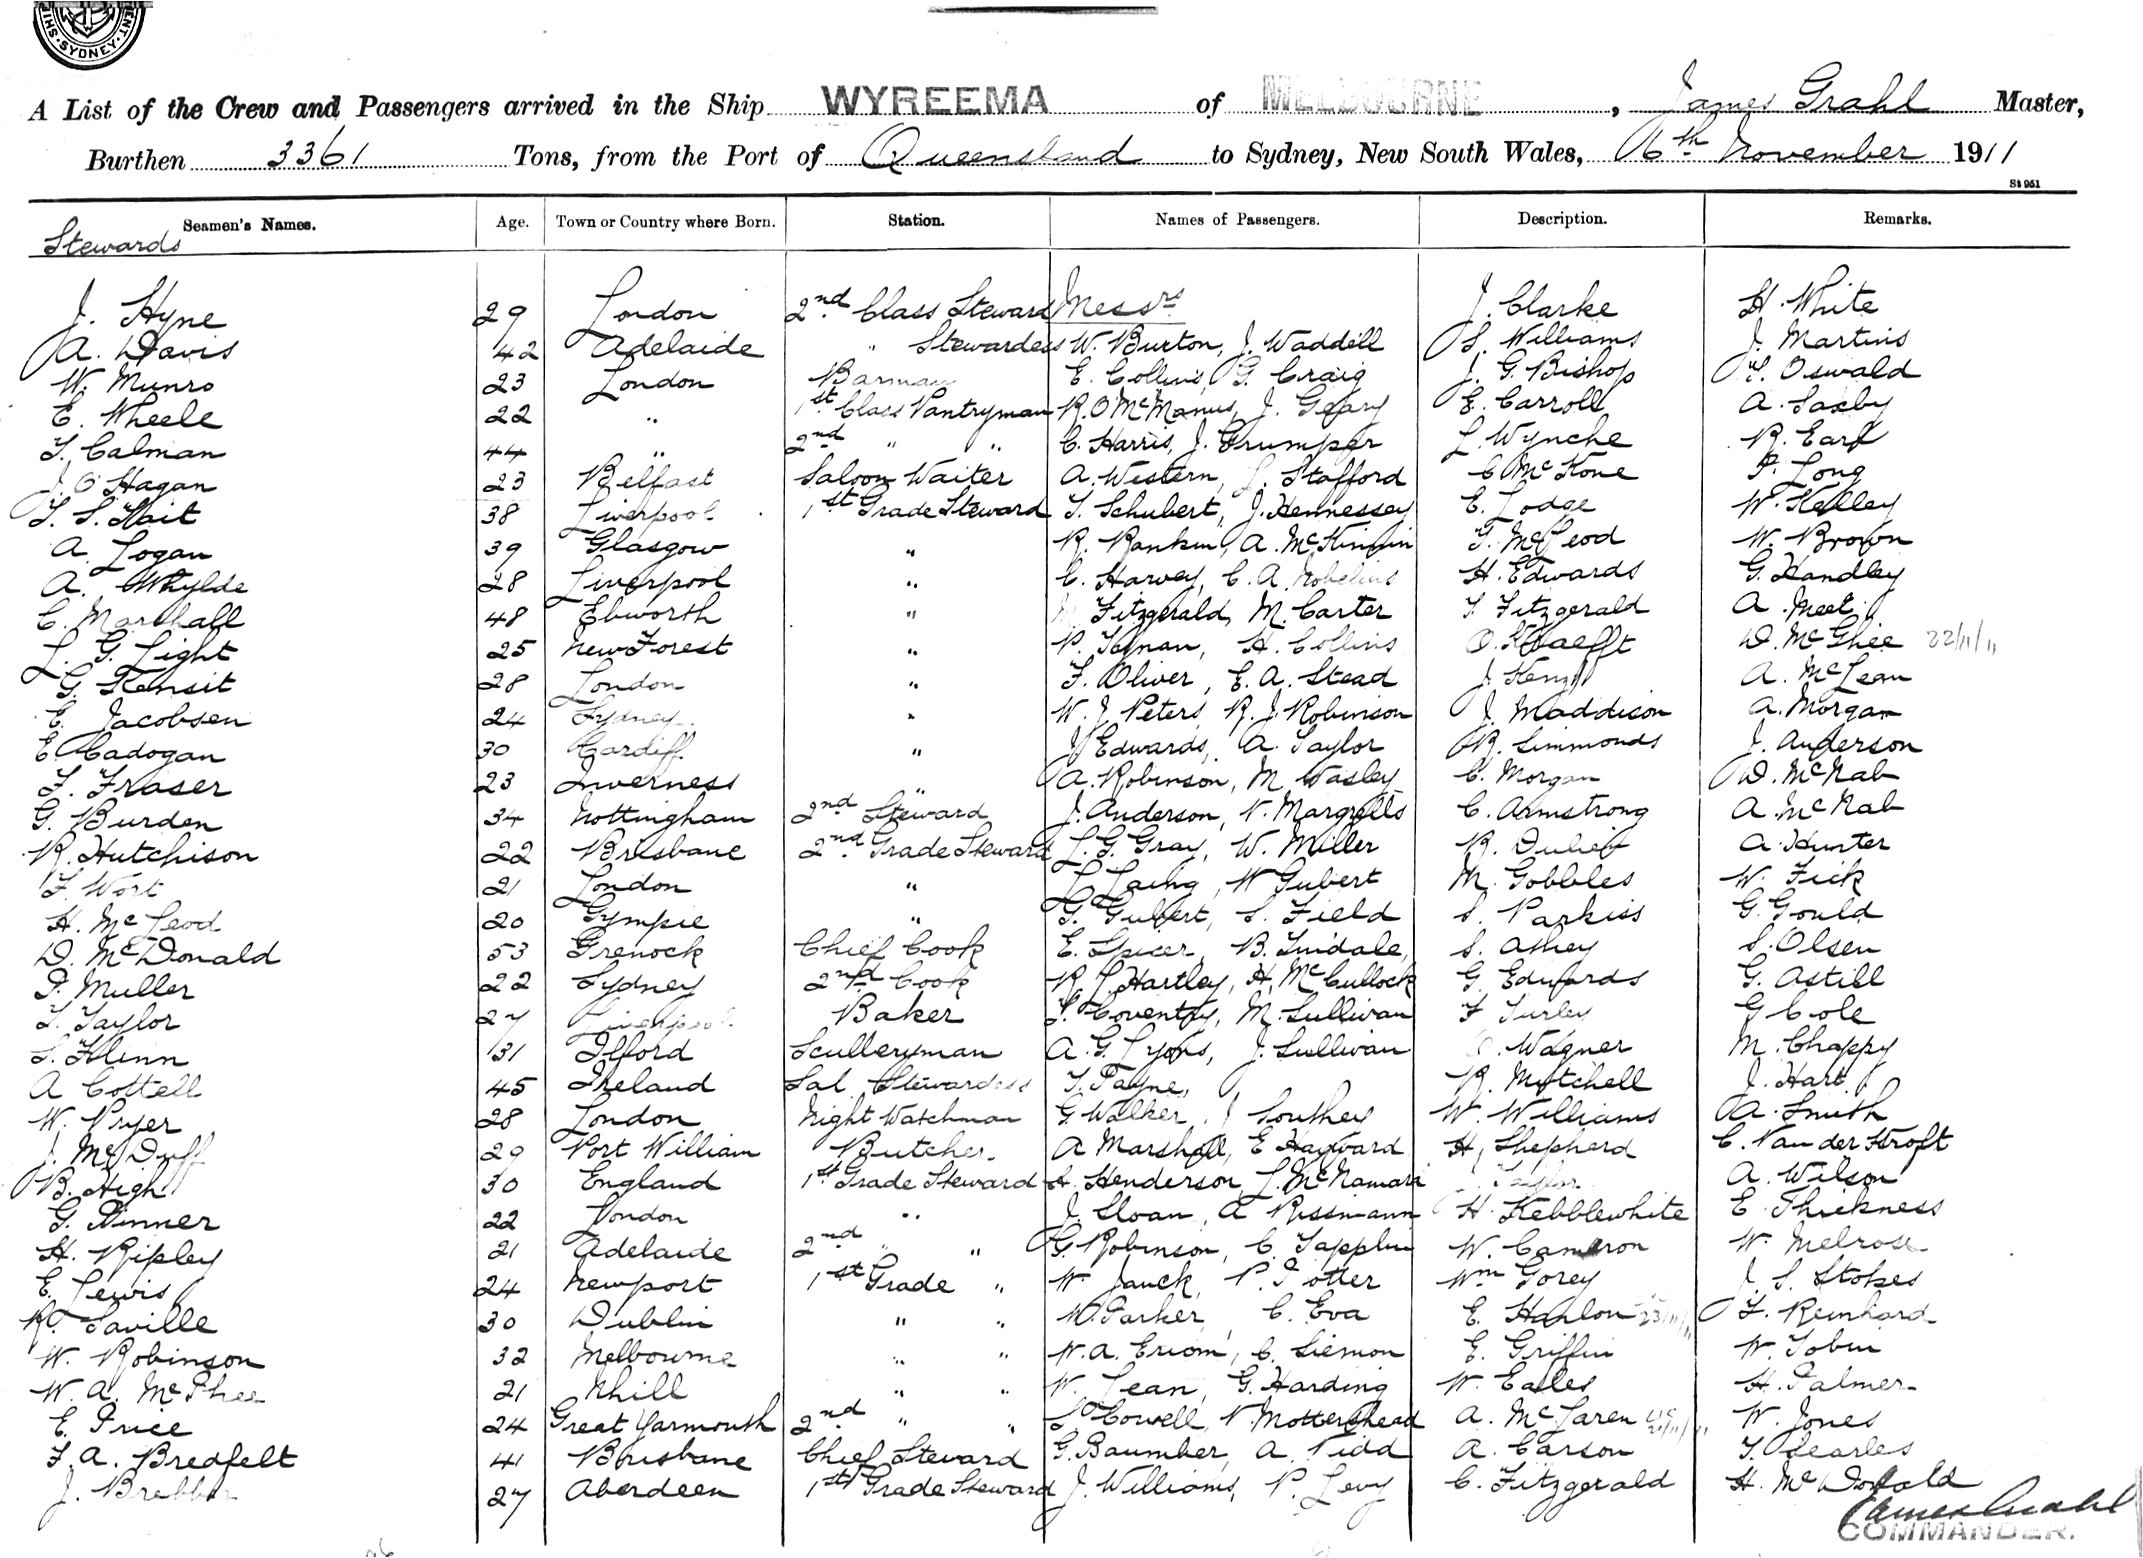 SYDNEY
A List of the Crew and Passengers arrived in the Ship WYREEMA of MELBOURNE, James Grahl Master,
Burthen 3361 Tons, from the Port of Queensland to Sydney, New South Wales, 6th November 1911
St 951
Seamen's Names. Age. Town or Country where Born. Station. Names of Passengers. Description. Remarks.
Stewards
J. Hyne 29 London 2nd Class Steward Messrs J. Clarke H. White
A. Davis 42 Adelaide " Stewardess W. Burton, J. Waddell S. Williams J. Martins
W. Munro 23 London Barman E. Collins, G. Craig J. G. Bishop T. Oswald
E. Wheele 22 " 1st Class Pantryman R. O McManus, J. Geary E. Carroll A. Saxby
T. Calman 44 " 2nd " " C. Harris, J. Grumper L. Wynche R. Earl
J. O'Hagan 23 Belfast Saloon Waiter A. Western, L. Stafford C McKone P. Long
T. S. Hait 38 Liverpool 1st Grade Steward T. Schubert, J. Hennessey E. Lodge W. Kelley
A. Logan 39 Glasgow " R. Rankin, A. McKinnin G. McLeod W. Brown
A. Whylde 28 Liverpool " C. Harvey, C. A. Nobelius H. Edwards G. Handley
C. Marshall 48 Ebworth " Fitzgerald, M. Carter T. Fitzgerald A. Meet
L. G. Light 25 New Forest " P. Tannan, H. Collins O. D. McGhee 22/11/11
G. Kensit 28 London " F. Oliver, E. A. Stead J. A. McLean
E. Jacobsen 24 Sydney " W. J. Peters, R. J. Robinson J. Maddison A. Morgan
E. Cadogan 30 Cardiff " J. Edwards, A. Taylor R. Simmonds J. Anderson
F. Fraser 23 Inverness " A. Robinson, M. Wasley C. Morgan D. McNab
G. Burden 34 Nottingham 2nd Steward J. Anderson, N. Margretts C. Armstrong A. McNab
R. Hutchison 22 Brisbane 2nd Grade Steward L. G. Gray, W. Miller R. A. Hunter
F. Wort 21 London " L Laing, W Gubert M. Gobbles W. Fick
H. McLeod 20 Gympie " G. Gubert, S. Field S. Parkiss G. Gould
D. McDonald 53 Grenock Chief Cook E. Spicer, B. Tindale, S. Athey S. Olsen
P. Muller 22 Sydney 2nd Cook R. L. Hartley, H. McCullock G. Edwards G. Astill
T. Taylor 27 Liverpool Baker T. Coventry, M. Sullivan F Turley G Cole
S. Flinn 31 Ilford Sculleryman A. G. Lyons, J. Sullivan Wagner M. Chappy
A Cottell 45 Ireland Sal. Stewardess T. Payne, R. Mitchell J. Hart
W. Pryer 28 London Night Watchman G. Walker, J Southey W. Williams A. Smith
J. McDuff 29 Port William Butcher A Marshall, E Hayward H. Shepherd C. Van der Stroft
B. High 30 England 1st Grade Steward A. Henderson, L. McNamara Taylor A. Wilson
G. Pinner 22 London " J. Sloan, A Rissmann H. Kebblewhite E Thickness
H. Ripley 21 Adelaide 2nd " " G. Robinson, C. Tapplin W. Cameron W. Melrose
E. Lewis 24 Newport 1st Grade " W Janck, P. Potter Wm Gorey J. S. Stokes
R. Saville 30 Dublin " " W. Parker, C. Eva E. Hanlon 23/11/11 F. Reinhard
W. Robinson 32 Melbourne " " W. A. C. Siemon E. Griffin W. Tobin
W. A. McPhee 21 Nhill " " W. Lean, G. Harding W. Eales H. Palmer
E. Price 24 Great Yarmouth 2nd " " S Cowell, N Mottershead A. McLaren W. Jones
F. A. Bredfelt 41 Brisbane Chief Steward G. Baumber, A. Vidd A. Carson T. Searles
J. Brebbin 27 Aberdeen 1st Grade Steward J. Williams, P. Levy C. Fitzgerald H. McDonald
James Grahl
COMMANDER.